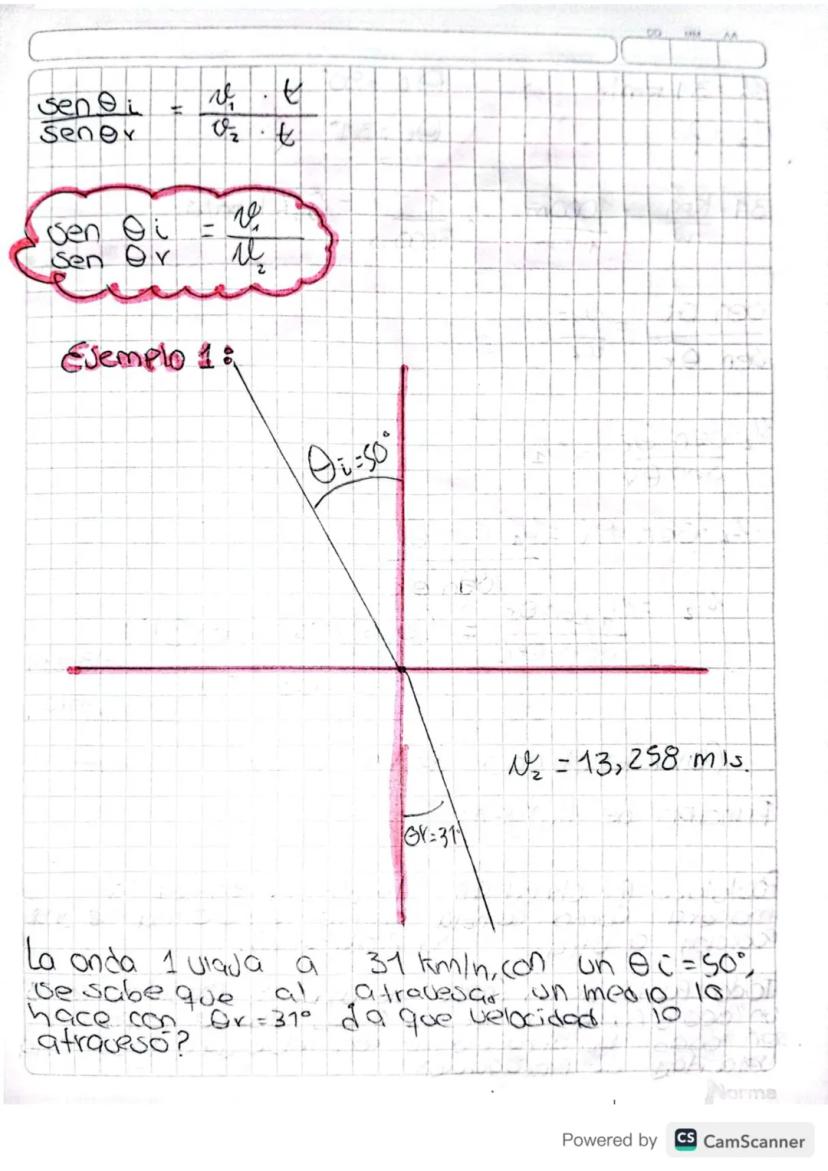 DD MM AA
sen θ i = v₁ · t
sen θ r v₂ · t
sen θ i = v₁
sen θ r v₂
Ejemplo 1:
θi=50°
v₂ = 13,258 m/s.
θr=31°
La onda 1 viaja a 31 km/h, con un θi = 50°,
se sabe que al atravesar un medio lo
hace con θr = 31° ¿a que velocidad lo
atravesó?
Norma
Powered by CS CamScanner